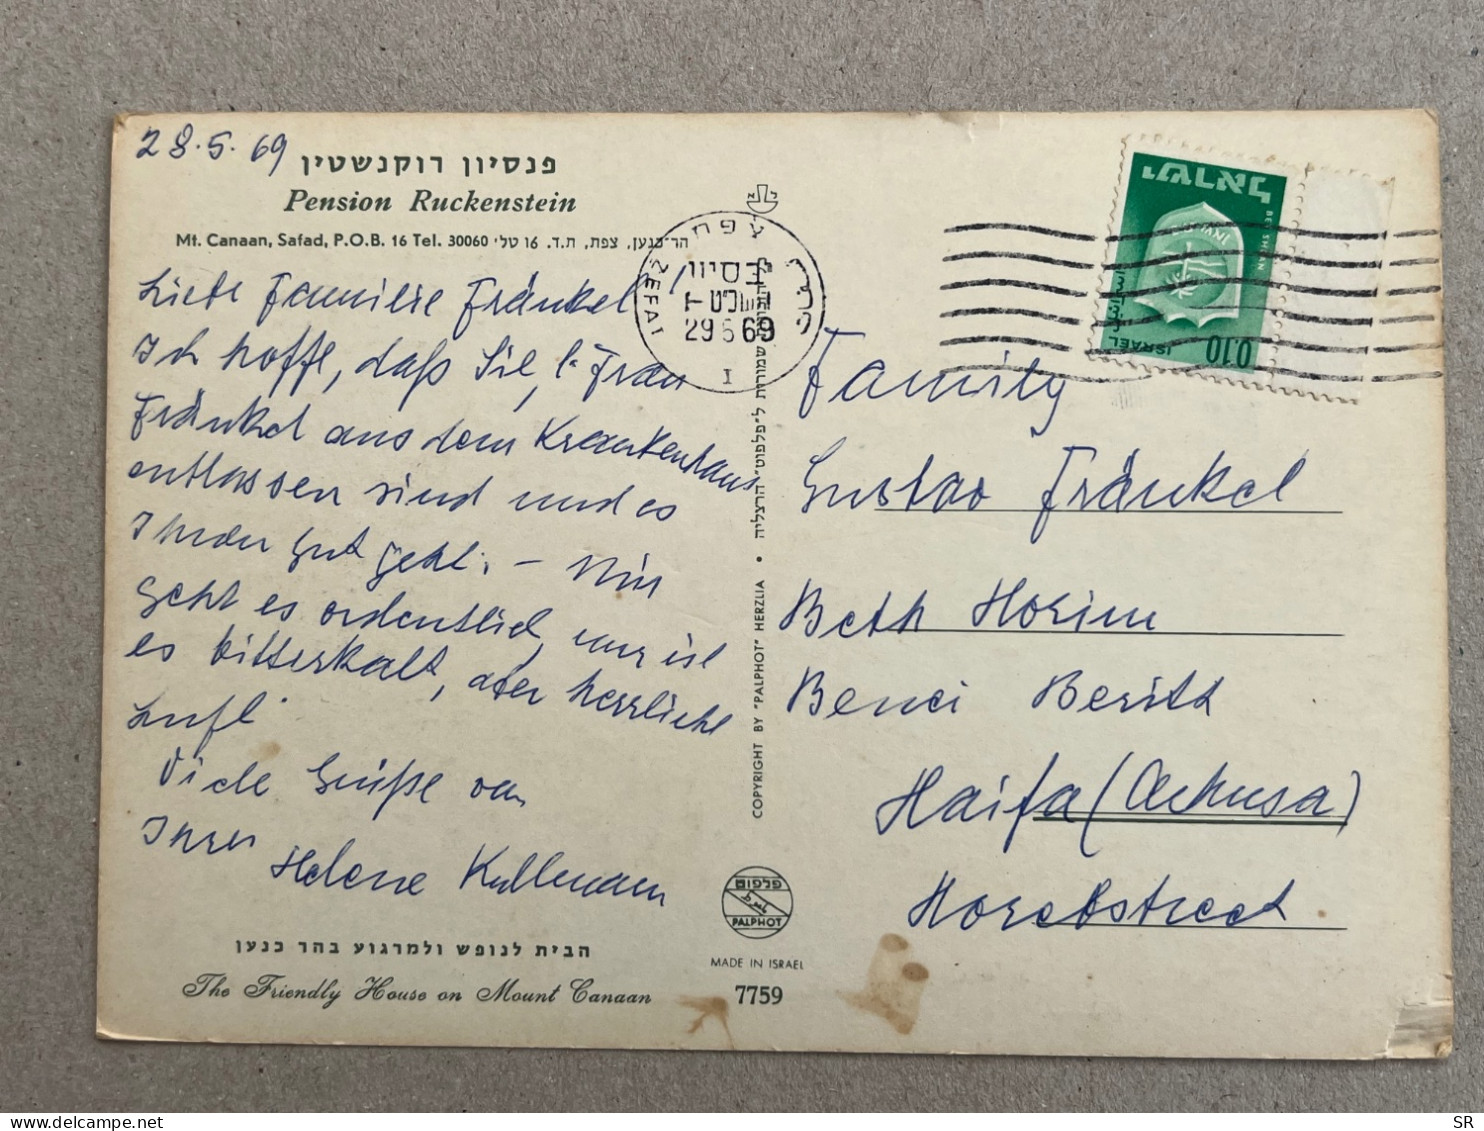 28.5.69
פנסיון רוקנשטין
Pension Ruckenstein
Mt. Canaan, Safad, P.O.B. 16 Tel. 30060 הר-כנען, צפת, ת.ד. 16 טל׳
Liebe Familie Fränkel,
Ich hoffe, daß Sie, l. Frau
Fränkel aus dem Krankenhaus
entlassen sind und es
Ihnen gut geht. – Mir
geht es ordentlich, nur ist
es bitterkalt, aber herrliche
Luft.
Viele Grüße von
Ihrer Helene Kullmann
הבית לנופש ולמרגוע בהר כנען
The Friendly House on Mount Canaan
צפת
ZEFAT
29 5 69
I
COPYRIGHT BY "PALPHOT" HERZLIA • שמורות ל"פלפוט" הרצליה
פלפוט
PALPHOT
MADE IN ISRAEL
7759
ישראל
BET SHEAN
ISRAEL
0.10
Family
Gustav Fränkel
Beth Horim
Benei Berith
Haifa (Achusa)
Horebstreet
SR
www.delcampe.net